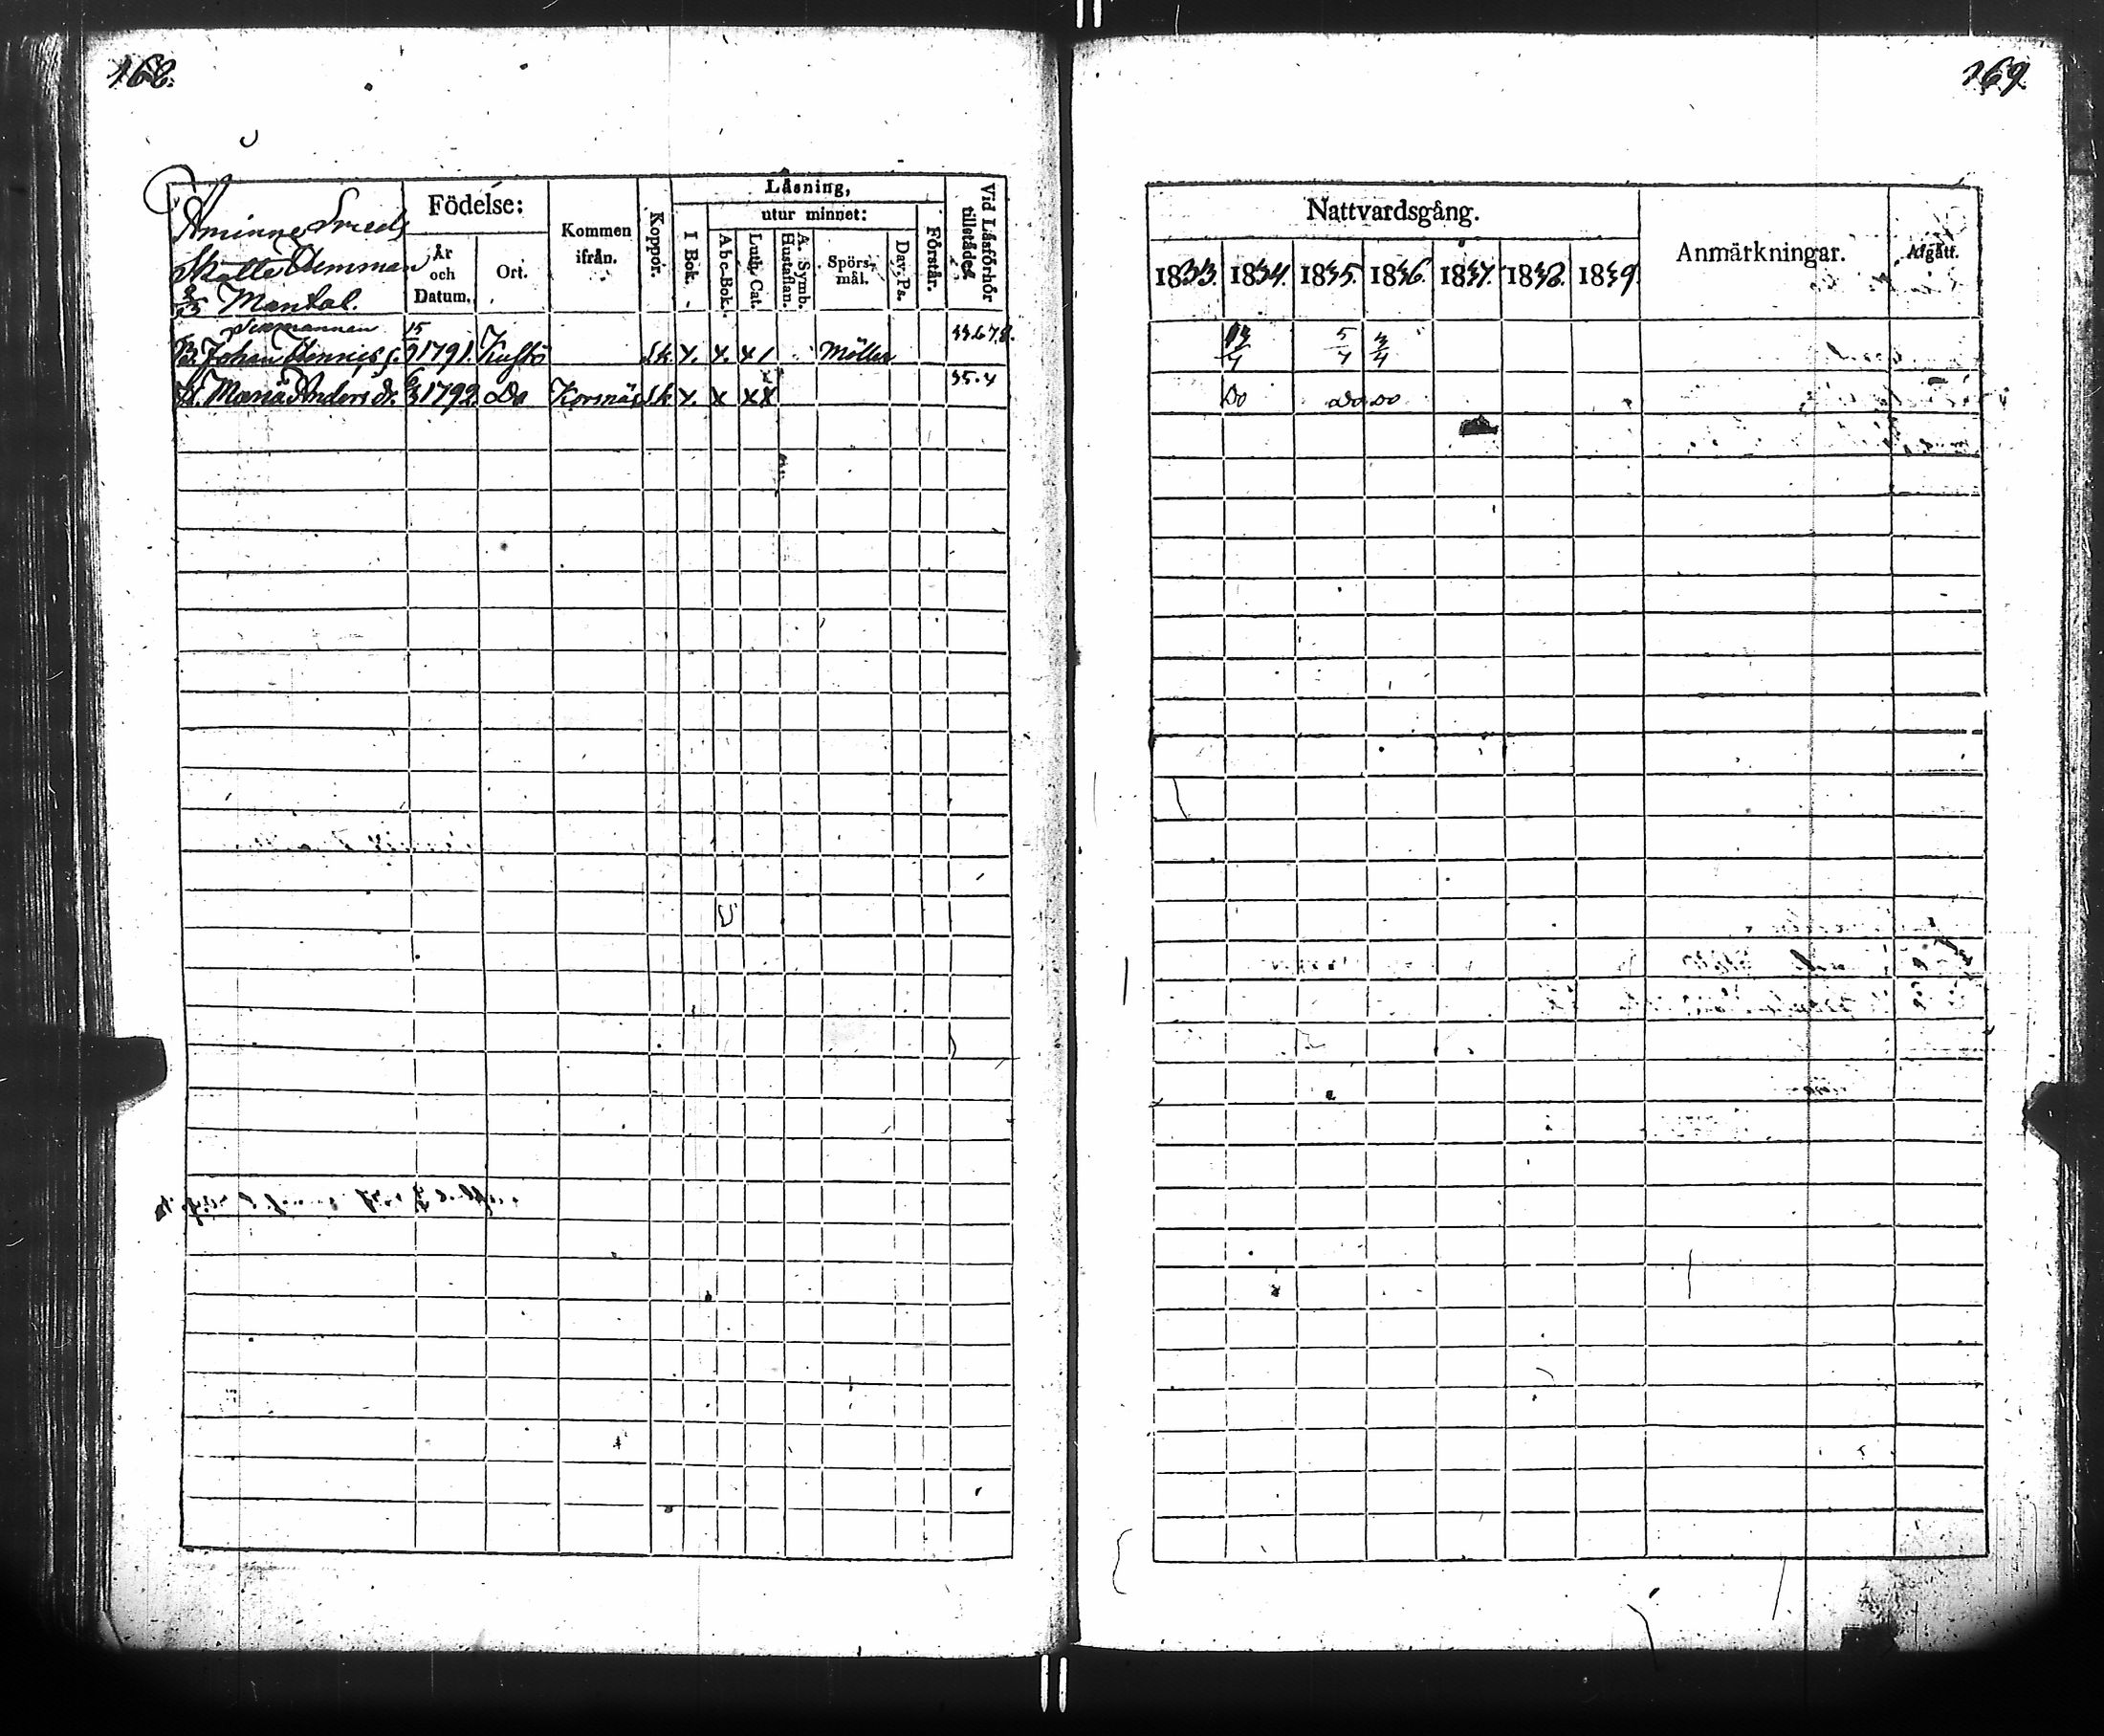 168.
Åminne Smeds
Skatte Hemman
2/5 Mantal.
Födelse:
År och Datum.
Ort.
Kommen ifrån.
Koppor.
Läsning,
I Bok.
utur minnet:
Abc-Bok.
Luth. Cat.
A. Symb. Hustaflan.
Spörsmål.
Dav. Ps.
Förstår.
Vid Läsförhör tillstädes
Sexmannen
B. Johan Hennics s. 15/9 1791. Kustö Sk x. x. x / Möller 33.6.7.8.
H. Maria Anders dr. 1792. Do Korsnäs Sk x. x x x 35.4
169
Nattvardsgång.
1833. 1834. 1835. 1836. 1837. 1838. 1839.
Anmärkningar.
Afgått.
13/4 5/4 3/4
Do Do Do